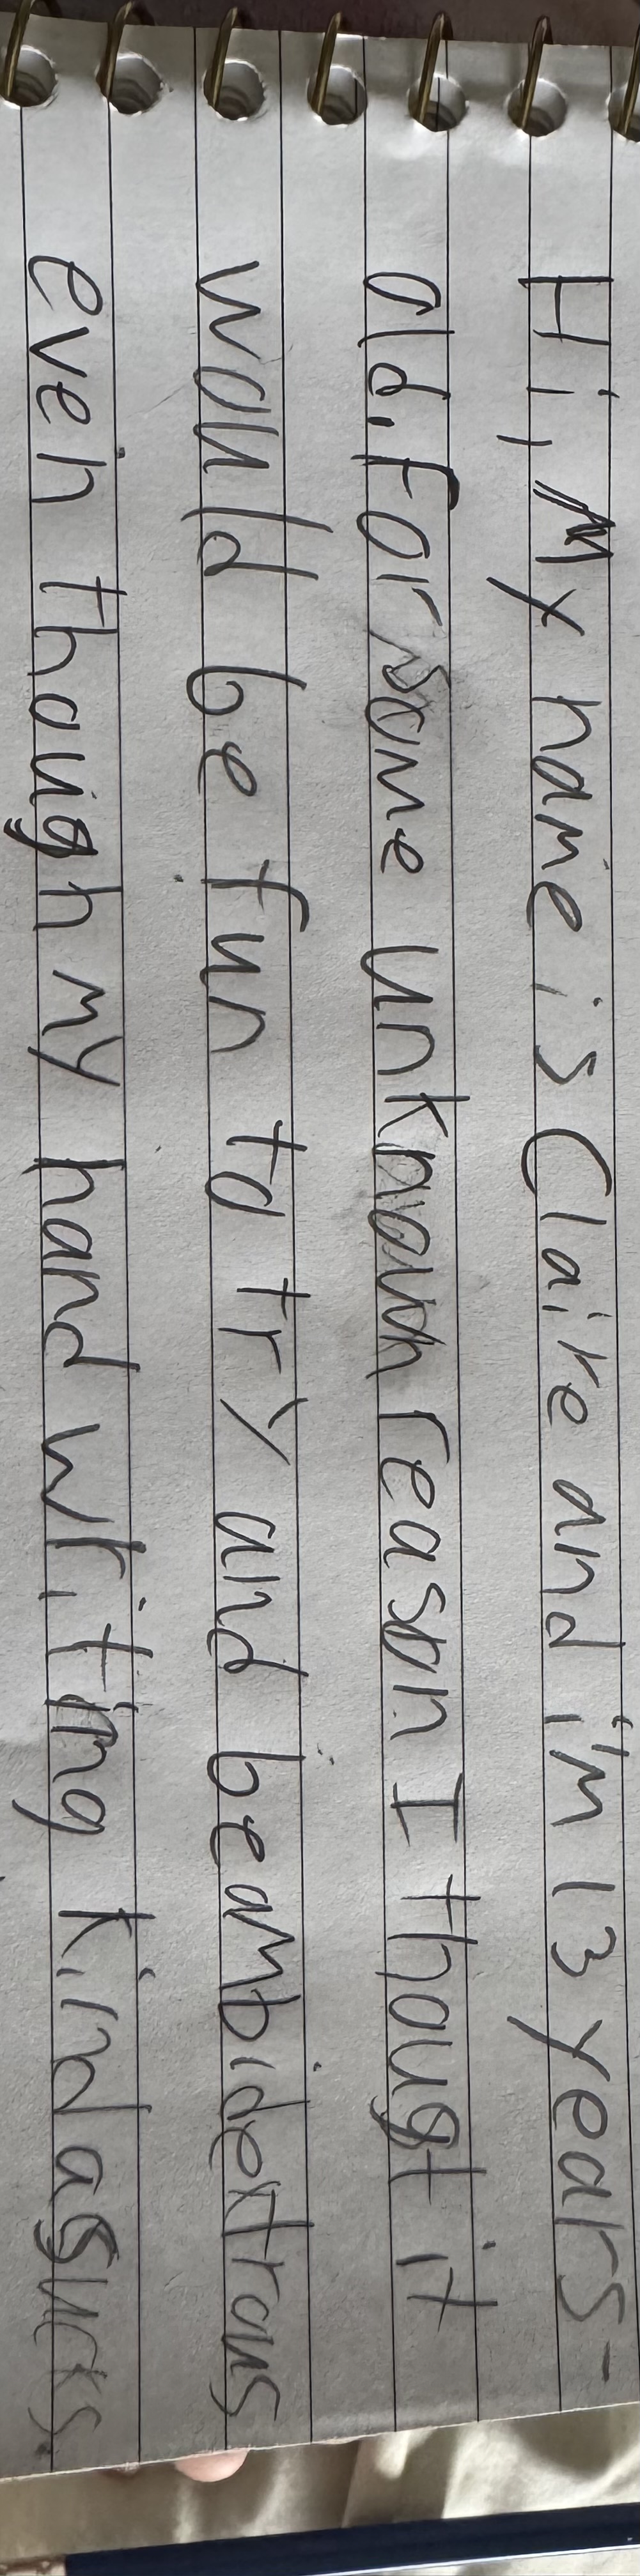 Hi, My name is Claire and i'm 13 years-
old. For some unknown reason I thougt it
would be fun to try and be ambidextrous
even though my hand writing kinda sucks.